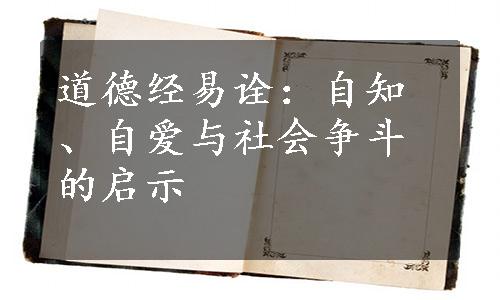 道德经易诠：自知
、自爱与社会争斗
的启示